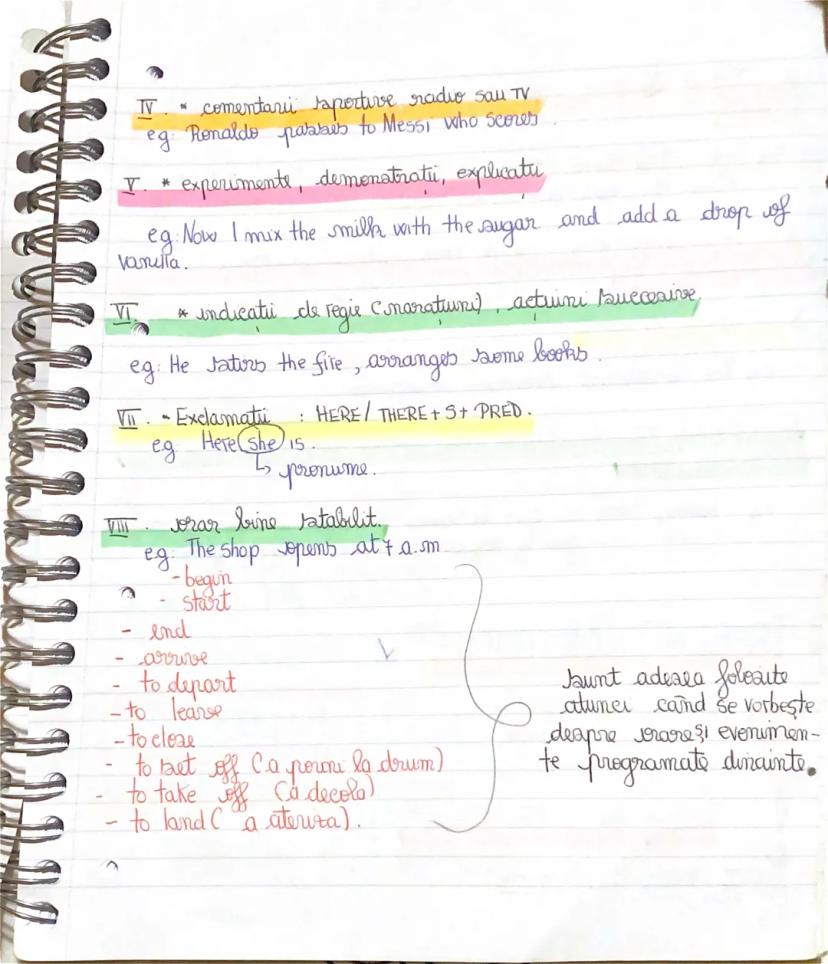 IV. * comentarii sportive radio sau TV
eg: Ronaldo passes to Messi who scores.
V. * experimente, demonstrații, explicații
eg: Now I mix the milk with the sugar and add a drop of
vanilla.
VI. * indicații de regie (narațiuni), acțiuni succesive
eg: He stirs the fire, arranges some books.
VII. * Exclamații : HERE/ THERE + S + PRED.
eg. Here she is.
↳ pronume.
VIII. orar bine stabilit.
eg: The shop opens at 7 a.m
- begin
- start
- end
- arrive
- to depart
- to leave
- to close
- to set off (a porni la drum)
- to take off (a decola)
- to land ( a ateriza).
sunt adesea folosite
atunci când se vorbește
despre orare și evenimen-
te programate dinainte.